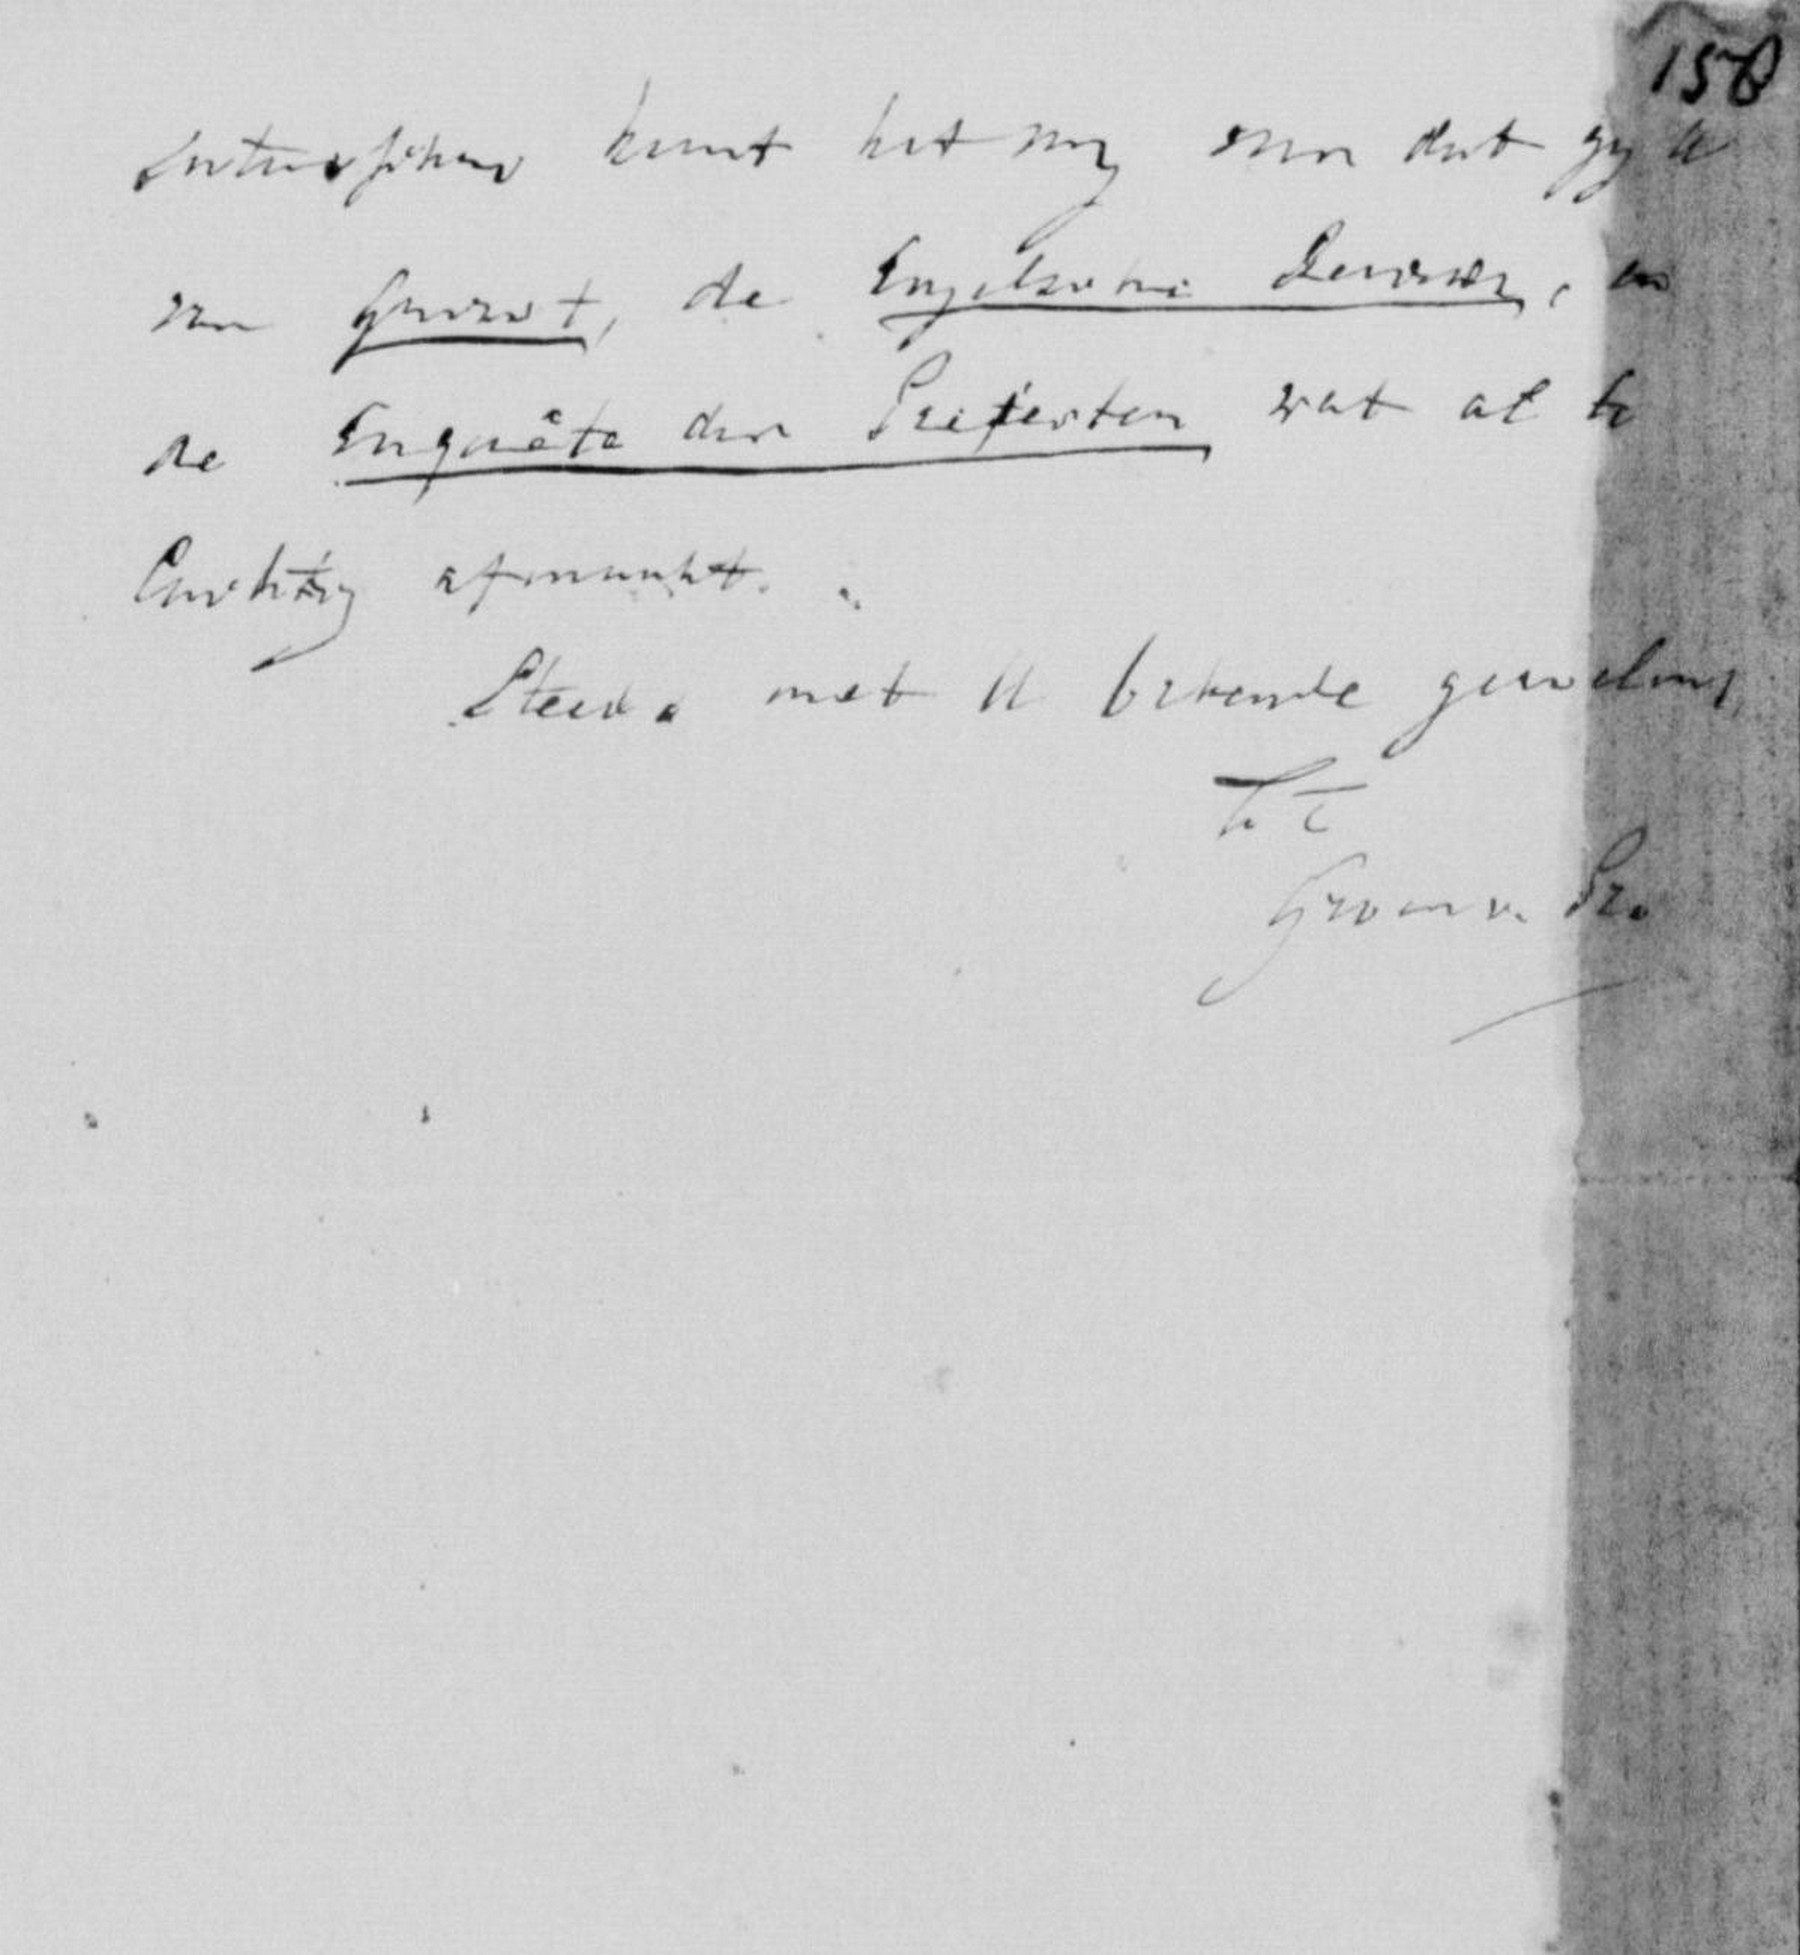 158
Intusschen komt het mij voor dat gij U
van Guizot, de Engelsche Reviews, en
de Enquête der Prefecten wat al te
luchtig afmaakt.
Steeds met U bekende gevoelens
t. t.
Groen v. Pr.